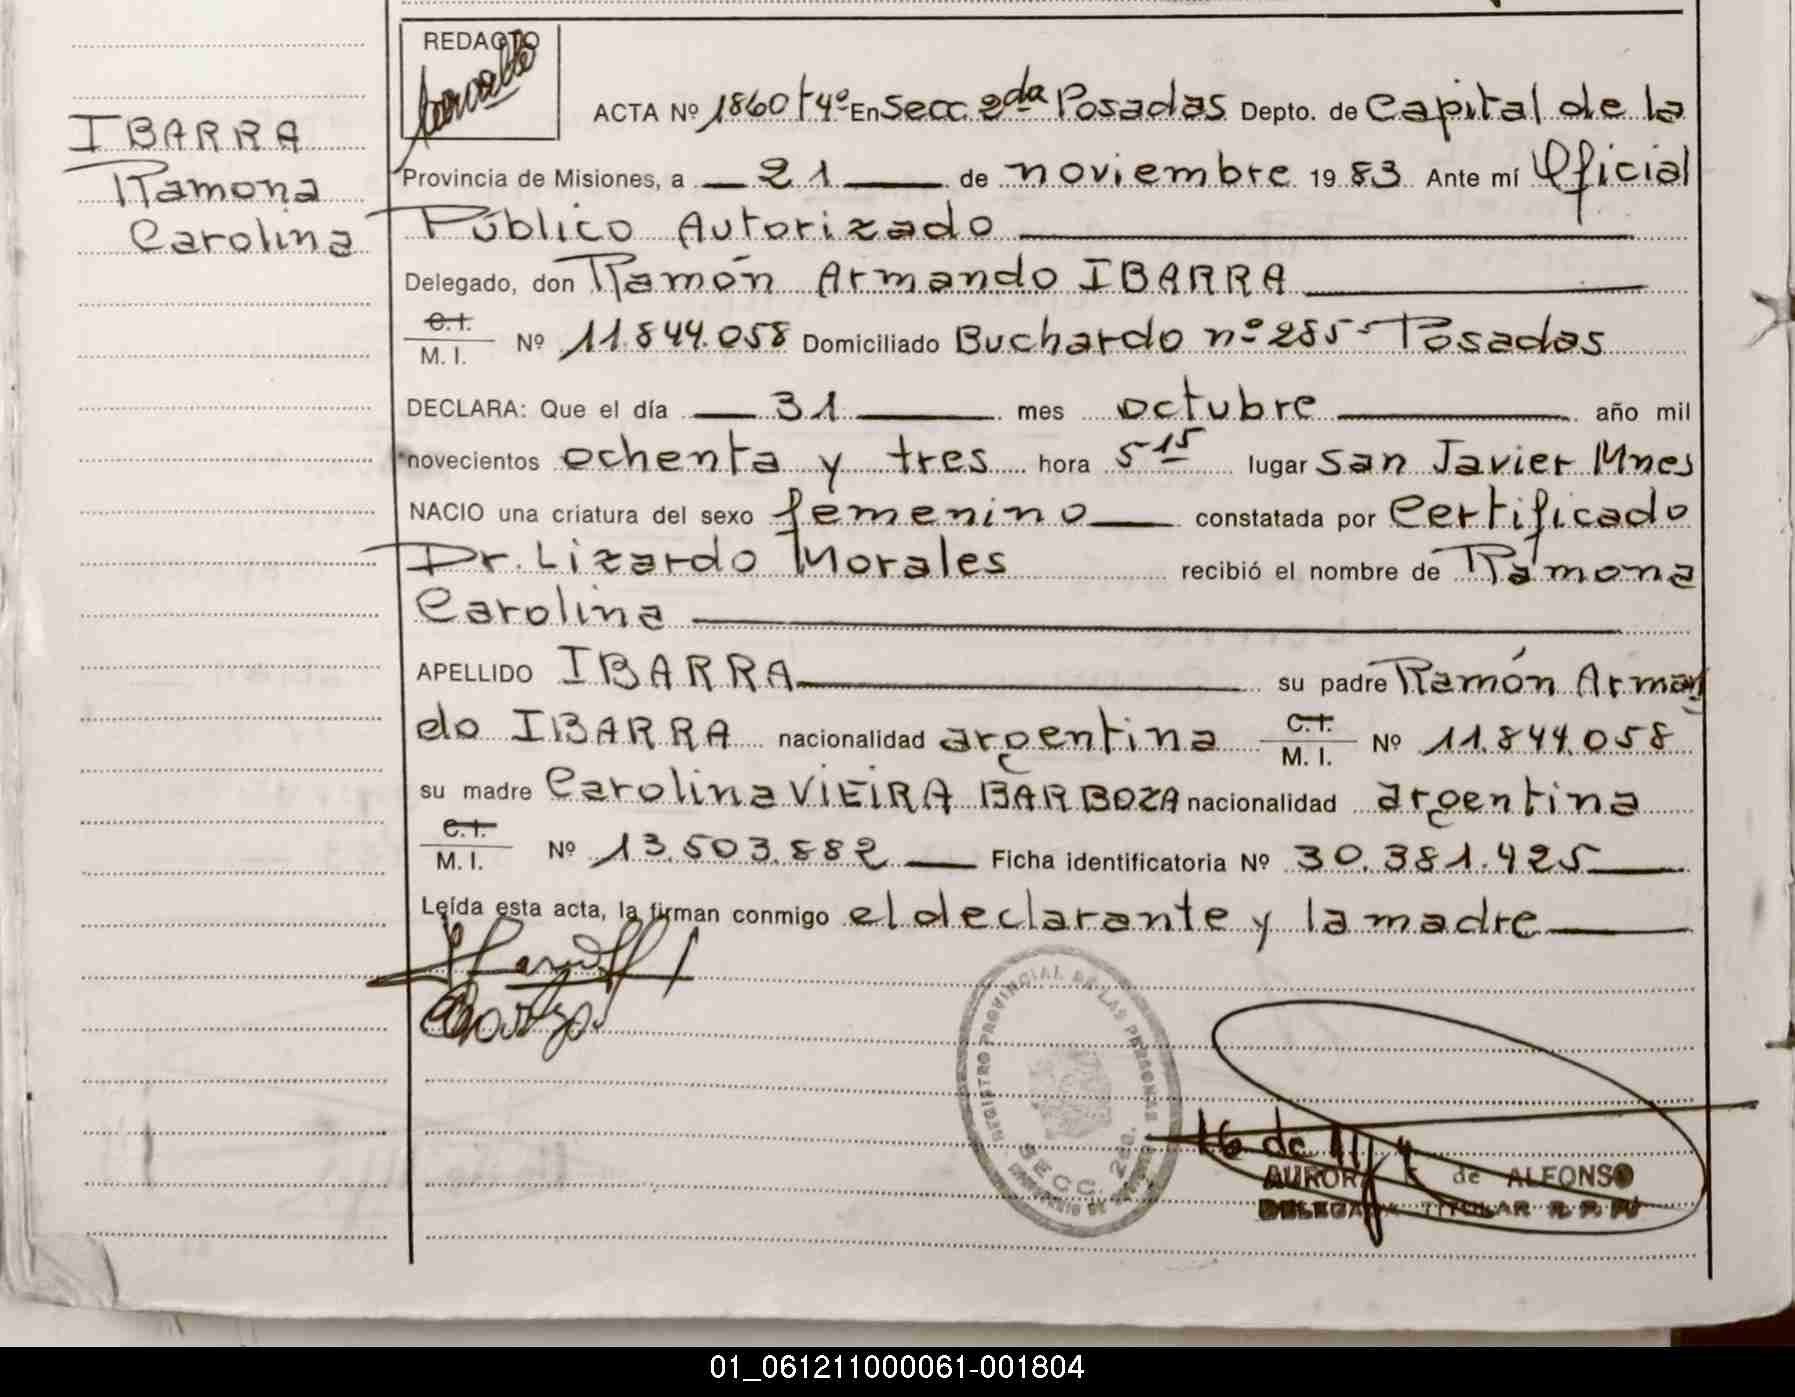 REDACTO
IBARRA
Ramona
Carolina
ACTA Nº 1860 tº 4º En Secc. 2da Posadas Depto. de Capital de la
Provincia de Misiones, a 21 de noviembre 19 83 Ante mí Oficial
Público Autorizado
Delegado, don Ramón Armando IBARRA
C.I.
M. I. Nº 11.844.058 Domiciliado Buchardo nº 285 - Posadas
DECLARA: Que el día 31 mes octubre año mil
novecientos ochenta y tres hora 5 15 lugar San Javier Mnes
NACIO una criatura del sexo femenino constatada por Certificado
Dr. Lizardo Morales recibió el nombre de Ramona
Carolina
APELLIDO IBARRA su padre Ramón Arman
do IBARRA nacionalidad argentina C.I. M. I. Nº 11.844.058
su madre Carolina VIEIRA BARBOZA nacionalidad argentina
C.I.
M. I. Nº 13.503.882 Ficha identificatoria Nº 30.381.425
Leída esta acta, la firman conmigo el declarante y la madre
REGISTRO PROVINCIAL DE LAS PERSONAS
SECC. 2da.
16 de
AURORA de ALFONSO
DELEGADA TITULAR R. P. P.
01_061211000061-001804